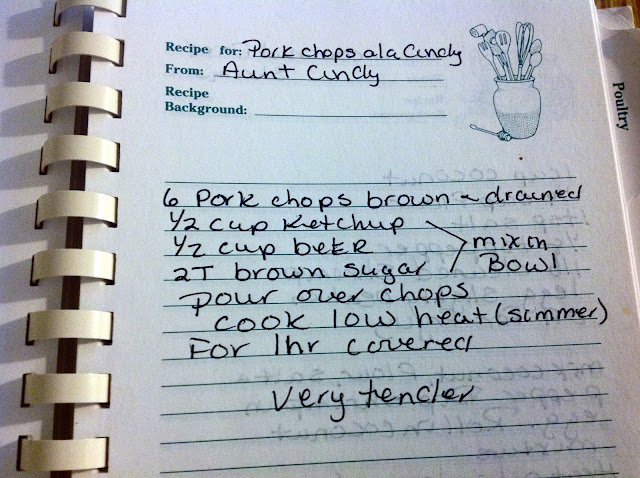 Recipe for: Pork chops ala Cindy
From: Aunt Cindy
Recipe
Background:
Poultry
6 Pork chops brown ~ drained
1/2 cup Ketchup
1/2 cup beer
mix in
2T brown sugar
Bowl
Pour over chops
cook low heat (simmer)
For 1hr covered
Very tender